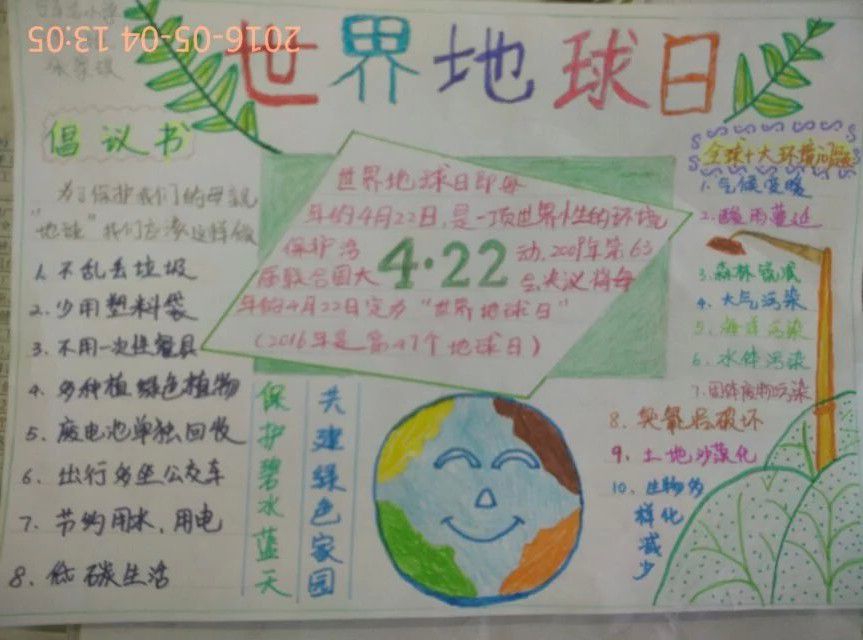 2016-05-04 13:05
世界地球日
倡议书
为了保护我们的母亲
"地球"我们应该这样做
1. 不乱丢垃圾
2. 少用塑料袋
3. 不用一次性餐具
4. 多种植绿色植物
5. 废电池单独回收
6. 出行多坐公交车
7. 节约用水、用电
8. 低碳生活
世界地球日即每
年的4月22日,是一项世界性的环境
保护活 4·22 动,2009年第63
届联合国大 会决议将每
年的4月22日定为"世界地球日"
(2016年是第47个地球日)
保护碧水蓝天
共建绿色家园
全球十大环境问题
1. 气候变暖
2. 酸雨蔓延
3. 森林锐减
4. 大气污染
5. 海洋污染
6. 水体污染
7. 固体废物污染
8. 臭氧层破坏
9. 土地沙漠化
10. 生物多
样化
减
少